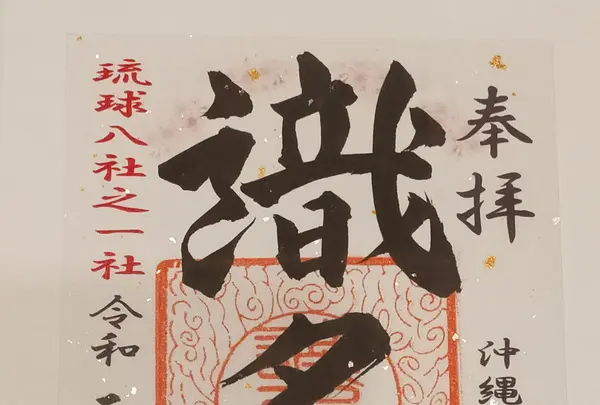 奉拝
沖縄
識名
琉球八社之一社
令和